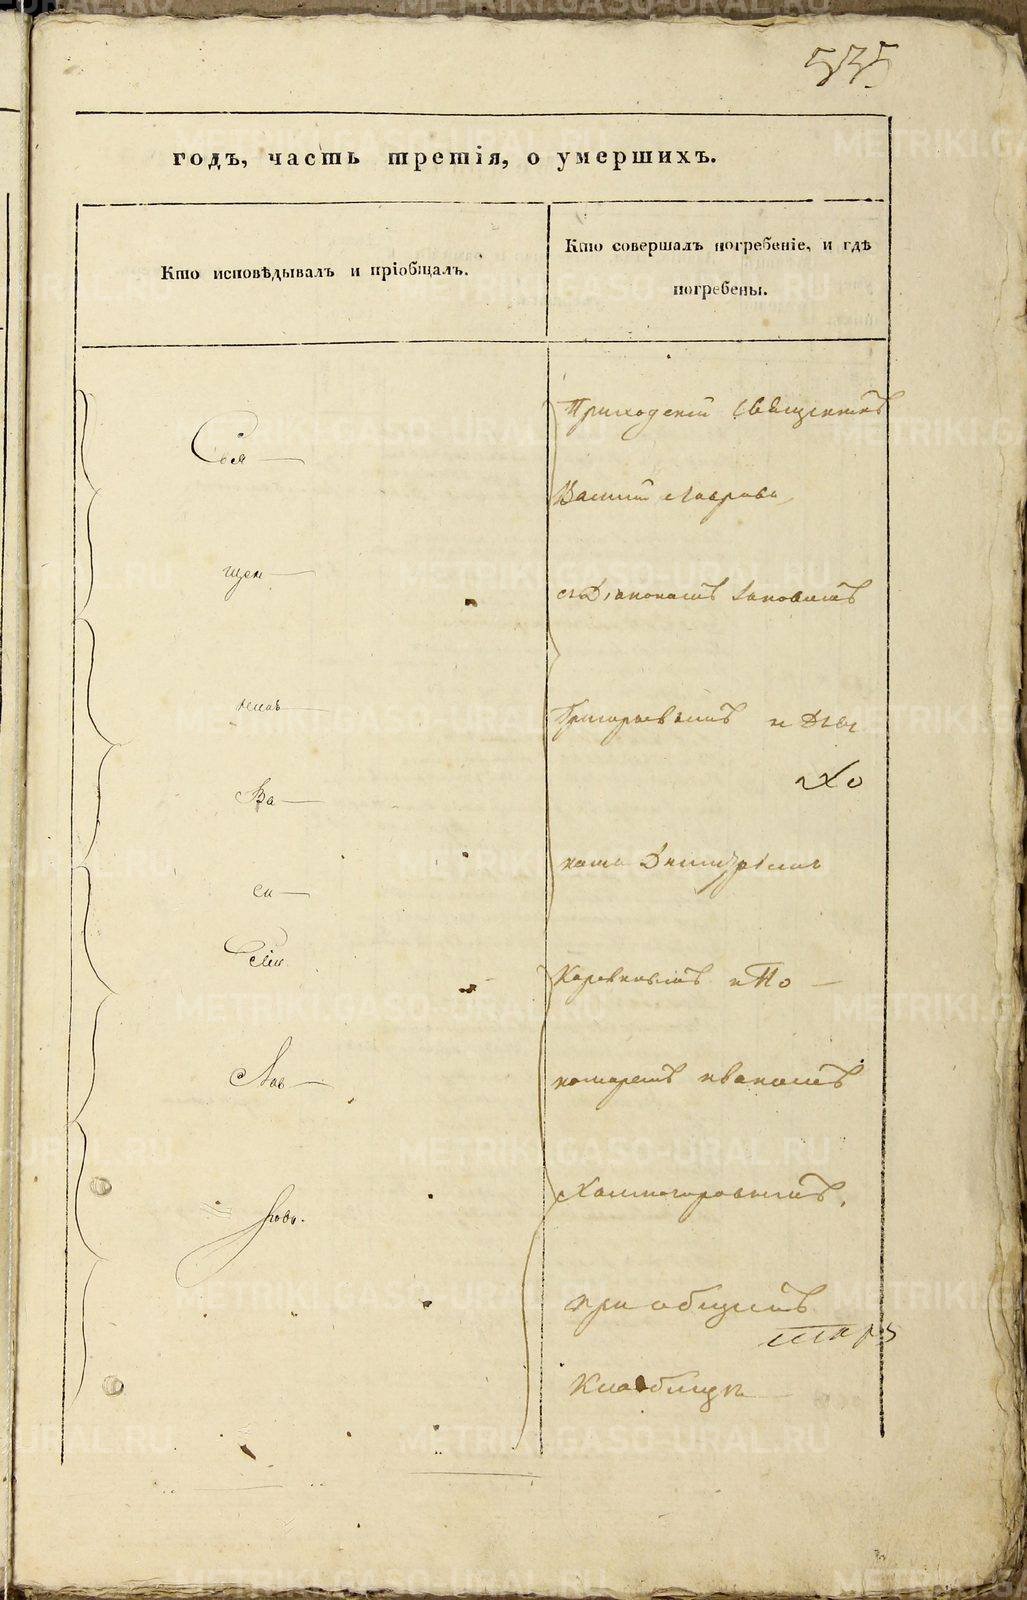 535
годъ, часть третія, о умершихъ.
Кто исповѣдывалъ и пріобщалъ.
Кто совершалъ погребеніе, и гдѣ
погребены.
Свя
щен
никъ
Ва
си
лій
Лав
ровъ.
Приходскій Священникъ
Василій Лавровъ,
съ Діакономъ Іаковомъ
Григорьевымъ и Дья
комъ Димитріемъ
и По
номаремъ Иваномъ
Холмогоровымъ.
при общемъ
Кладбищѣ
METRIKI.GASO-URAL.RU